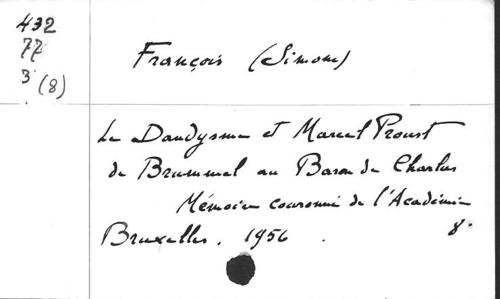 432
77
3 (8)
François (Simone)
Le Dandysme et Marcel Proust
de Brummel au Baron de Charlus
Mémoire couronné de l'Académie
Bruxelles. 1956. 8°